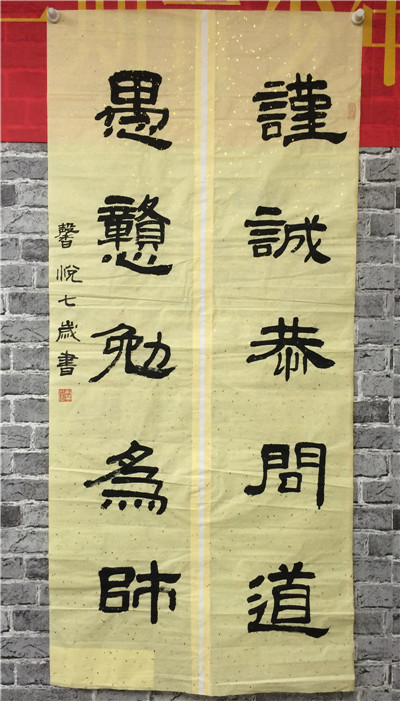 謹誠恭問道
愚戇勉為師
馨悅七歲書